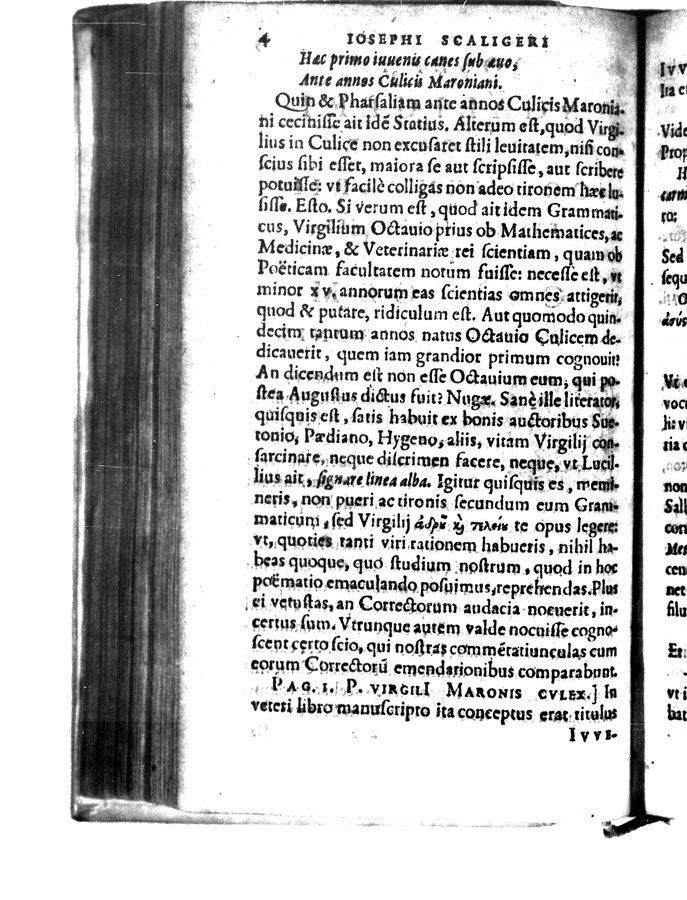 4 IOSEPHI SCALIGERI
Hæc primo iuuenis canes sub æuo,
Ante annos Culicis Maroniani.
Quin & Pharsaliam ante annos Culicis Maronia-
ni cecinisse ait idē Statius. Alterum est, quod Virgi-
lius in Culice non excusaret stili leuitatem, nisi con-
scius sibi esset, maiora se aut scripsisse, aut scribere
potuisse: vt facilè colligas non adeo tironem hæc lu-
sisse. Esto. Si verum est, quod ait idem Grammati-
cus, Virgilium Octauio prius ob Mathematices, ac
Medicinæ, & Veterinariæ rei scientiam, quam ob
Poëticam facultatem notum fuisse: necesse est, vt
minor xv. annorum eas scientias omnes attigerit,
quod & putare, ridiculum est. Aut quomodo quin-
decim tantum annos natus Octauio Culicem de-
dicauerit, quem iam grandior primum cognouit?
An dicendum est non esse Octauium eum, qui po-
stea Augustus dictus fuit? Nugæ. Sanè ille literator,
quisquis est, satis habuit ex bonis auctoribus Sue-
tonio, Pædiano, Hygeno, aliis, vitam Virgilij con-
sarcinare, neque discrimen facere, neque, vt Lucil-
lius ait, signare linea alba. Igitur quisquis es, memi-
neris, non pueri ac tironis secundum eum Gram-
maticum, sed Virgilij ἁδροῦ καὶ τελείου te opus legere:
vt, quoties tanti viri rationem habueris, nihil ha-
beas quoque, quo studium nostrum, quod in hoc
poëmatio emaculando posuimus, reprehendas. Plus
ei vetustas, an Correctorum audacia nocuerit, in-
certus sum. Vtrunque autem valde nocuisse cogno-
scent certo scio, qui nostras commētatiunculas cum
eorum Correctorū emendationibus comparabunt.
PAG. I. P. VIRGILI MARONIS CVLEX.] In
veteri libro manuscripto ita conceptus erat titulus
IVVE-
Ita e
Vide
Prop
carm
Sed
sequ
vocu
non
Sall
cen
net
filu
vt i
bat